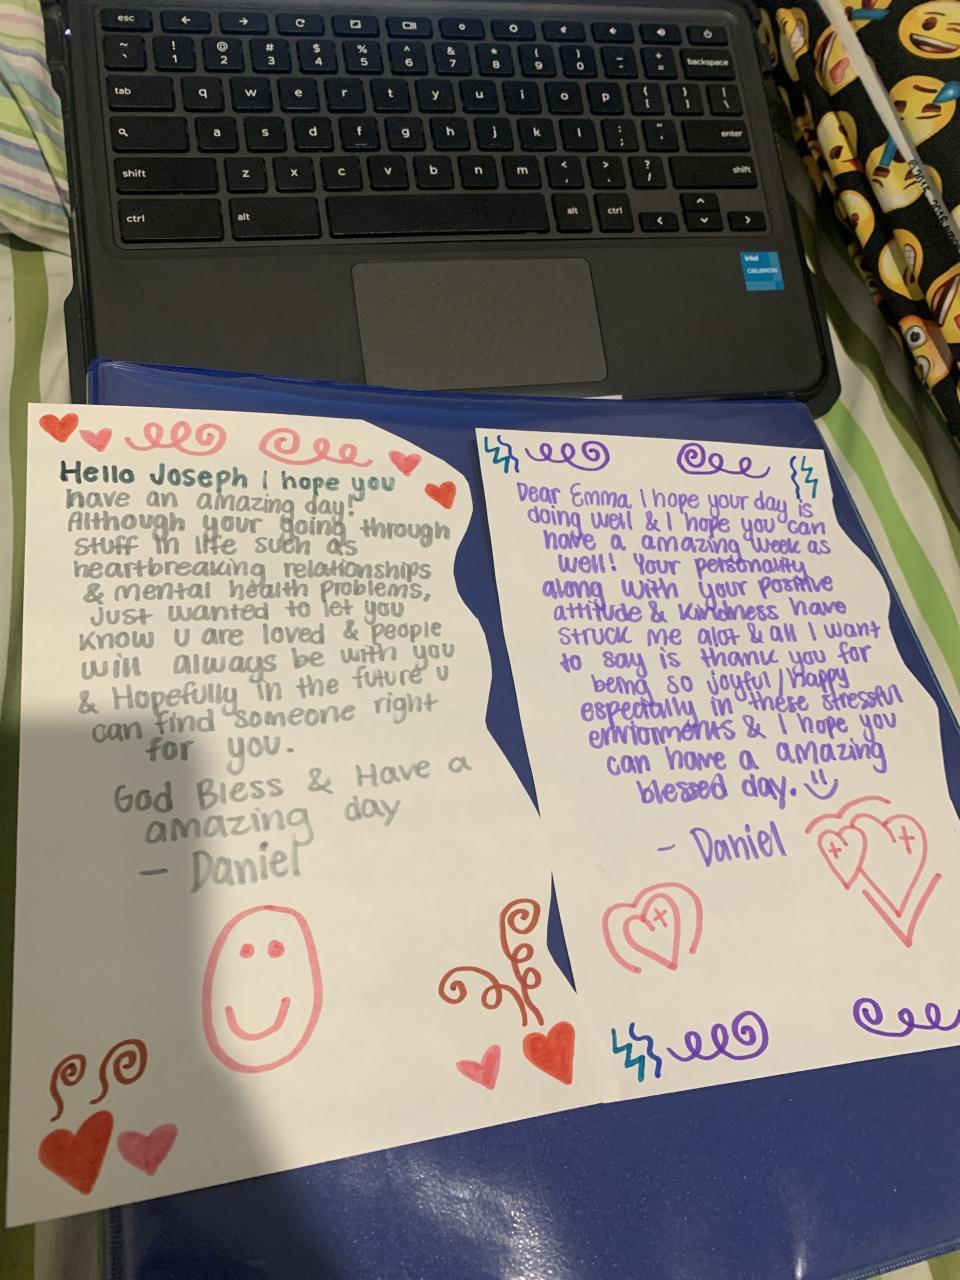 esc
~ ` ! 1 @ 2 # 3 $ 4 % 5 ^ 6 & 7 * 8 ( 9 ) 0 _ - + = backspace
tab q w e r t y u i o p { [ } ] | \
a s d f g h j k l : ; " ' enter
shift z x c v b n m < , > . ? / shift
ctrl alt alt ctrl
intel
CELERON
Hello Joseph I hope you
have an amazing day!
Although your going through
stuff in life such as
heartbreaking relationships
& mental health problems,
just wanted to let you
know u are loved & people
will always be with you
& Hopefully in the future u
can find someone right
for you.
God Bless & Have a
amazing day
- Daniel
Dear Emma, I hope your day is
doing well & I hope you can
have a amazing week as
well! Your personality
along with your positive
attitude & kindness have
struck me alot & all I want
to say is thank you for
being so joyful/Happy
especially in these stressful
& I hope you
can have a amazing
blessed day.
- Daniel